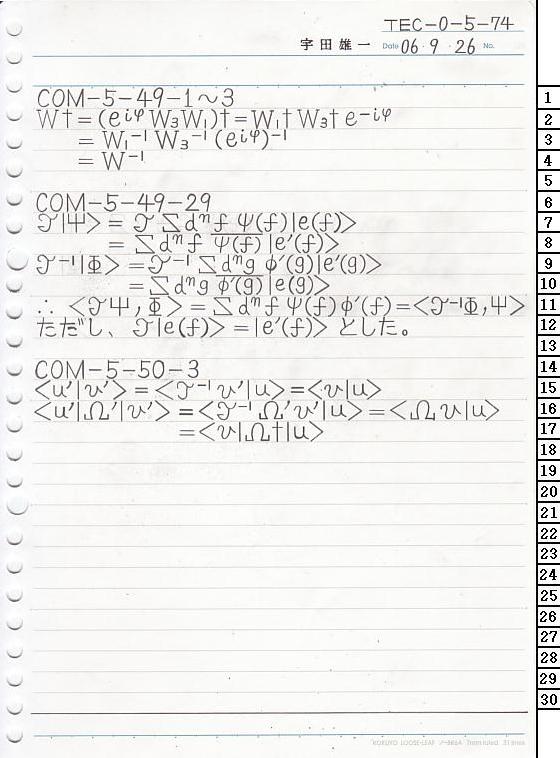 TEC-0-5-74
宇田雄一 Date 06・9・26 No.
COM-5-49-1～3
W† = (e^{iφ} W₃W₁)† = W₁† W₃† e^{-iφ}
= W₁⁻¹ W₃⁻¹ (e^{iφ})⁻¹
= W⁻¹
COM-5-49-29
𝒯|Ψ> = 𝒯 ∑ dⁿf ψ(f)|e(f)>
= ∑ dⁿf \overline{ψ(f)} |e′(f)>
𝒯⁻¹|Φ> = 𝒯⁻¹ ∑ dⁿg φ′(g)|e′(g)>
= ∑ dⁿg \overline{φ′(g)} |e(g)>
∴ <𝒯Ψ, Φ> = ∑ dⁿf ψ(f) φ′(f) = <𝒯⁻¹Φ, Ψ>
ただし、𝒯|e(f)> = |e′(f)> とした。
COM-5-50-3
<u′|v′> = <𝒯⁻¹ v′|u> = <v|u>
<u′|Ω′|v′> = <𝒯⁻¹ Ω′ v′|u> = <Ω v|u>
= <v|Ω†|u>
1
2
3
4
5
6
7
8
9
10
11
12
13
14
15
16
17
18
19
20
21
22
23
24
25
26
27
28
29
30
KOKUYO LOOSE-LEAF ノ-836A 7mm ruled 31 lines